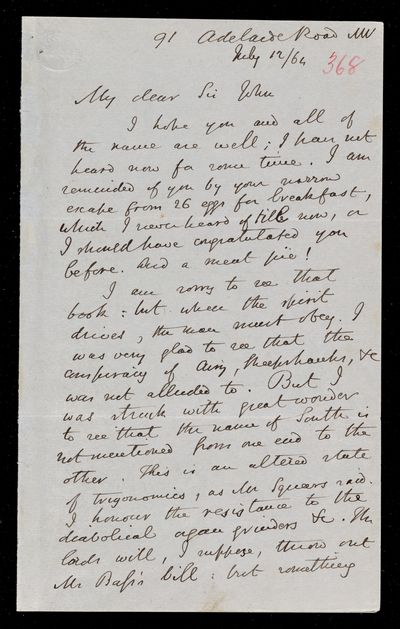 91 Adelaide Road NW
July 12/64
368
My dear Sir John
I hope you and all of
the name are well; I have not
heard now for some time. I am
reminded of you by your narrow
escape from 26 eggs for breakfast,
which I never heard of till now, or
I should have congratulated you
before. And a meat pie!
I am sorry to see that
book: but when the spirit
drives, the man must obey. I
was very glad to see that the
conspiracy of Airy, Sheepshanks, &c
was not alluded to. But I
was struck with great wonder
to see that the name of South is
not mentioned from one end to the
other. This is an altered state
of trigonomics, as Mr Squeers said.
I honour the resistance to the
diabolical organ grinders &c. The
lords will, I suppose, throw out
Mr Bass's bill: but something